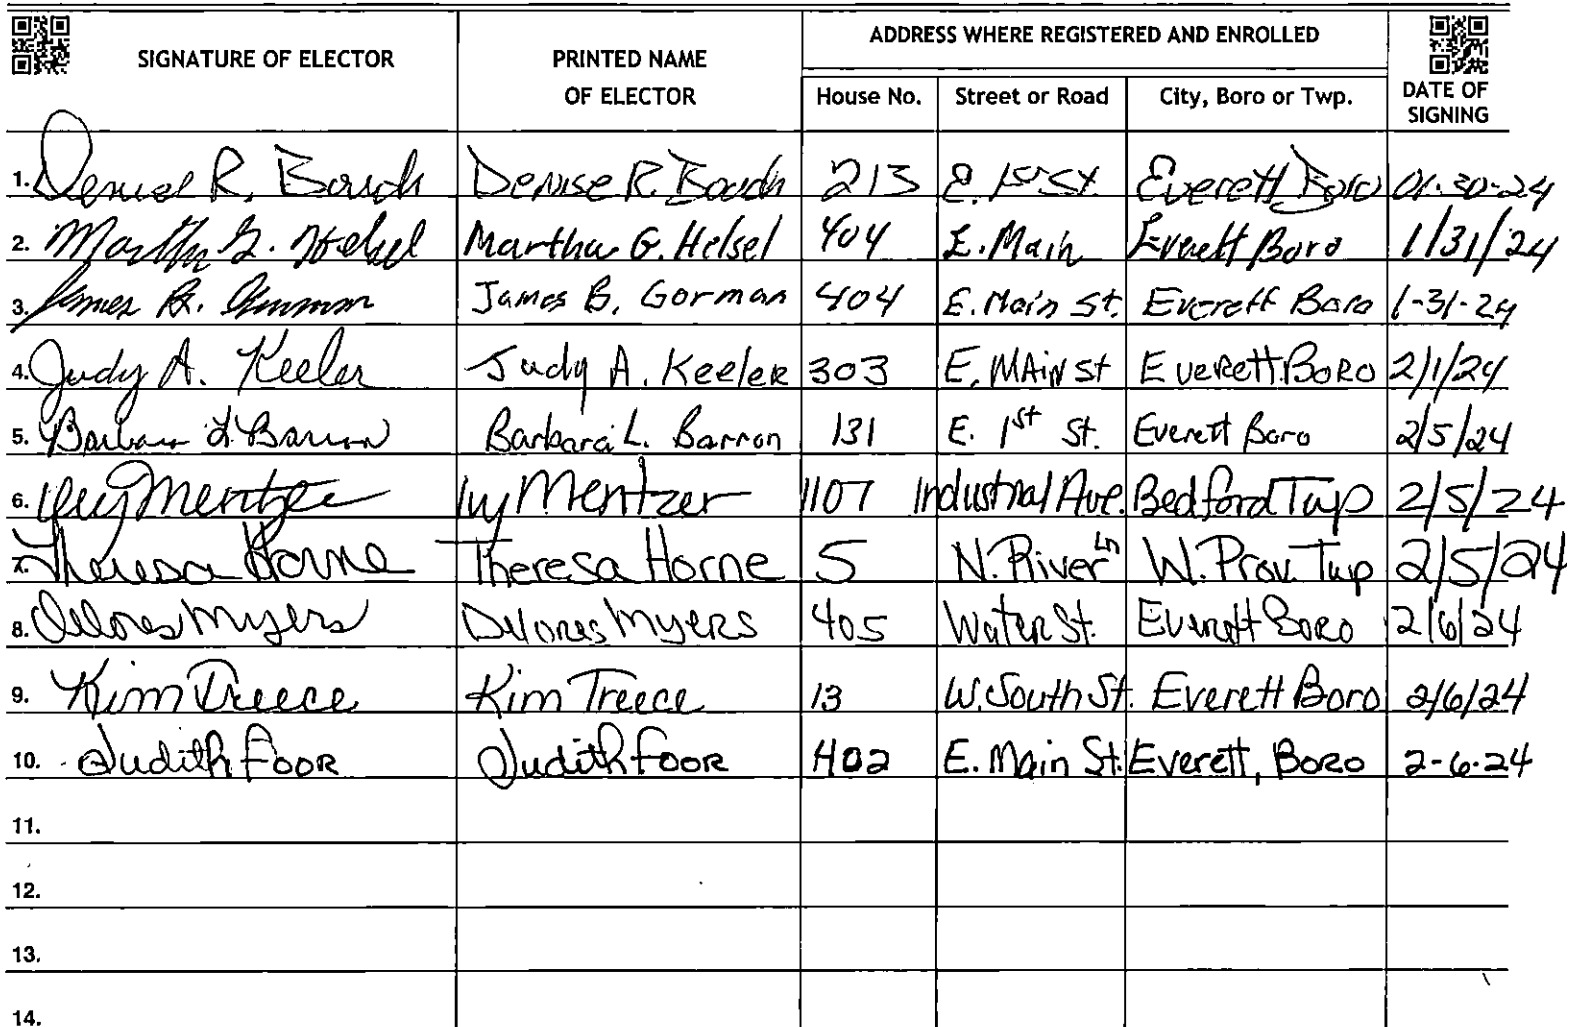 SIGNATURE OF ELECTOR PRINTED NAME OF ELECTOR ADDRESS WHERE REGISTERED AND ENROLLED DATE OF SIGNING
House No. Street or Road City, Boro or Twp.
1. Denise R. Bouch Denise R. Bouch 213 E. 1st St. Everett Boro 01-30-24
2. Martha G. Helsel Martha G. Helsel 404 E. Main Everett Boro 1/31/24
3. James B. Gorman James B. Gorman 404 E. Main St. Everett Boro 1-31-24
4. Judy A. Keeler Judy A. Keeler 303 E. MAin St Everett Boro 2/1/24
5. Barbara L. Barron Barbara L. Barron 131 E. 1st St. Everett Boro 2/5/24
6. Ivy Mentzer Ivy Mentzer 1107 Industrial Ave. Bedford Twp 2/5/24
7. Theresa Horne Theresa Horne 5 N. River Ln W. Prov. Twp 2/5/24
8. Delores Myers Delores Myers 405 Water St. Everett Boro 2/6/24
9. Kim Treece Kim Treece 13 W. South St. Everett Boro 2/6/24
10. Judith Foor Judith Foor 402 E. Main St. Everett, Boro 2-6-24
11.
12.
13.
14.